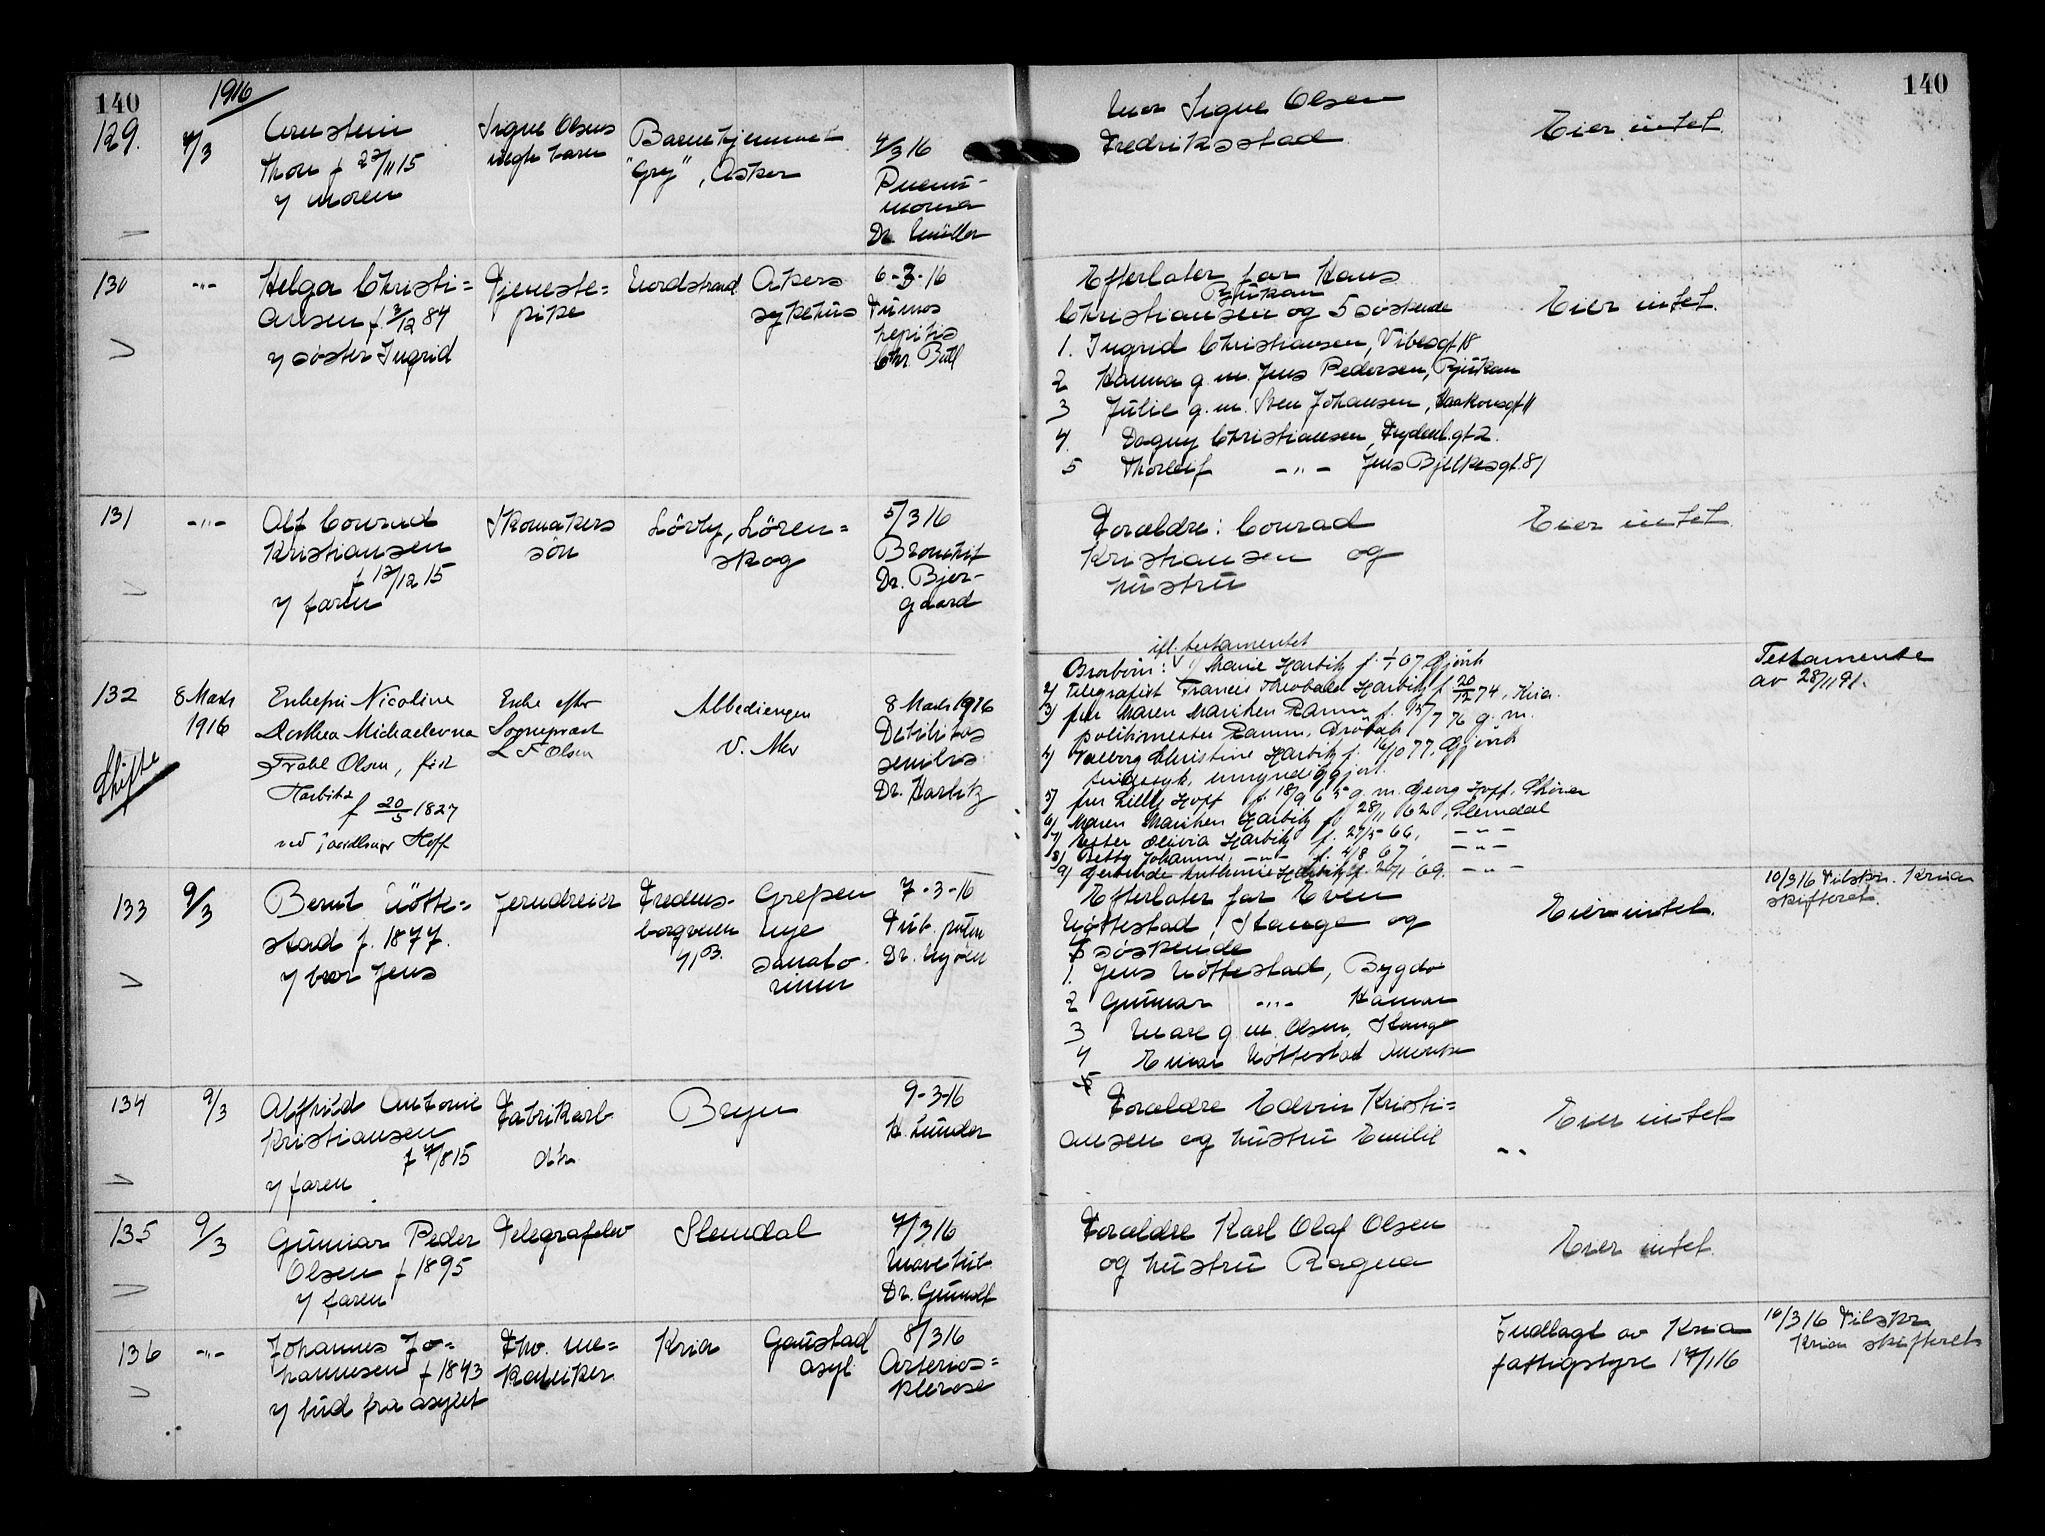 140
1916
129.
4/3
Arnstein
Thon f 23/11 15
v/ moren
Signe Olsens
uegte barn
Barnehjemmet
"Gry", Asker
4/3 16
Pneu-
monia
Dr. Müller
Mor Signe Olsen
Fredriksstad
Eier intet.
140
130
-"-
Helga Christi=
ansen f 3/12 84
v/ søster Ingrid
Tjeneste=
pike
Nordstrand
Akers
sykehus
6-3-16
Tumor
hepitis
Chr. Bull
Efterlater far Hans
Rjukan
Christiansen og 5 søskende
1. Ingrid Christiansen, Vibesgt 18
2 Hanna g. m. Jens Pedersen, Rjukan
3 Julie g. m. Sven Johansen, Haakonsgt 11
4. Dagny Christiansen, Frydenl.gt 2.
5 Thorleif -"- Jens Bjelkesgt. 81
Eier intet.
131
-"-
Alf Conrad
Kristiansen
f 12/12 15
v/ faren
Skomakers
søn
Lövly, Lören=
skog
5/3 16
Bronchit
Dr. Bjer-
gaard
Forældre: Conrad
Kristiansen og
hustru
Eier intet.
132
Skifte
8 Mars
1916
Enkefru Nicoline
Dorthea Michaelovna
Prahl Olsen, föd
Harbitz
f 20/5 1827
ved Hoff
Enke efter
Sogneprest
L F Olsen
Abbediengen
V. Aker
8 Mars 1916
Debilitas
senilis
Dr. Harbitz
ifl. testamentet
Brorbörn: 1) Marie Harbitz f. 1/1 67, Gjövik
2) Telegrafist Francis Theobald Harbitz f 20/12 74, Kria.
3) fru Maren Mariken Ramm f. 15/7 76 g. m.
politimester Ramm, Dröbak
4) Valborg Christine Harbitz f. 16/10 77, Gjövik
sindssyk, umyndiggjort.
5) fru Lilly Hoff f. 18/9 65 g. m. Georg Hoff, Skien
6) Maren Mariken Harbitz f. 28/11 62, Slemdal
7) Ester Olivia Harbitz f. 27/5 66, -"-
8) Betty Johanne -"- f. 4/8 67, -"-
9) Gertrude Anthonie Harbitz f. 26/1 69. -"-
Testamente
av 28/11 91.
133
9/3
Bernt Nötte=
stad f. 1877.
v/ bror Jens
Jerndreier
Fredens-
borgveien
41 B.
Grefsen
nye
sanato
rium
7-3-16
Tub. pulm
Dr. Mjöen
Efterlater far Even
Nöttestad, Stange og
5 søskende
1. Jens Nöttestad, Bygdö
2 Gunnar -"- Hamar
3 Mare g. m. Olsen, Stange
4 Einar Nöttestad Amerika
5
Eier intet.
10/3 16 Tilskr. Kria
skifteret.
134
9/3
Alfhild Antonie
Kristiansen
f 7/8 15
v/ faren
Fabrikarb
dtr
Bryn
9-3-16
H. Lunder
Forældre Edvin Kristi=
ansen og hustru Emilie
Eier intet
135
9/3
Gunnar Peder
Olsen f 1895
v/ faren
Telegrafelev
Slemdal
7/3 16
Mave tub.
Dr. Gundt
Forældre Karl Olaf Olsen
og hustru Ragna
Eier intet.
136
-"-
Johannes Jo=
hannesen f 1843
v/ bud fra asylet
Fhv. me=
kaniker
Kria
Gaustad
asyl
8/3 16
Arterios=
klerose
Indlagt av Kria
fattigstyre 17/1 16
10/3 16 Tilskr.
Kria skifteret